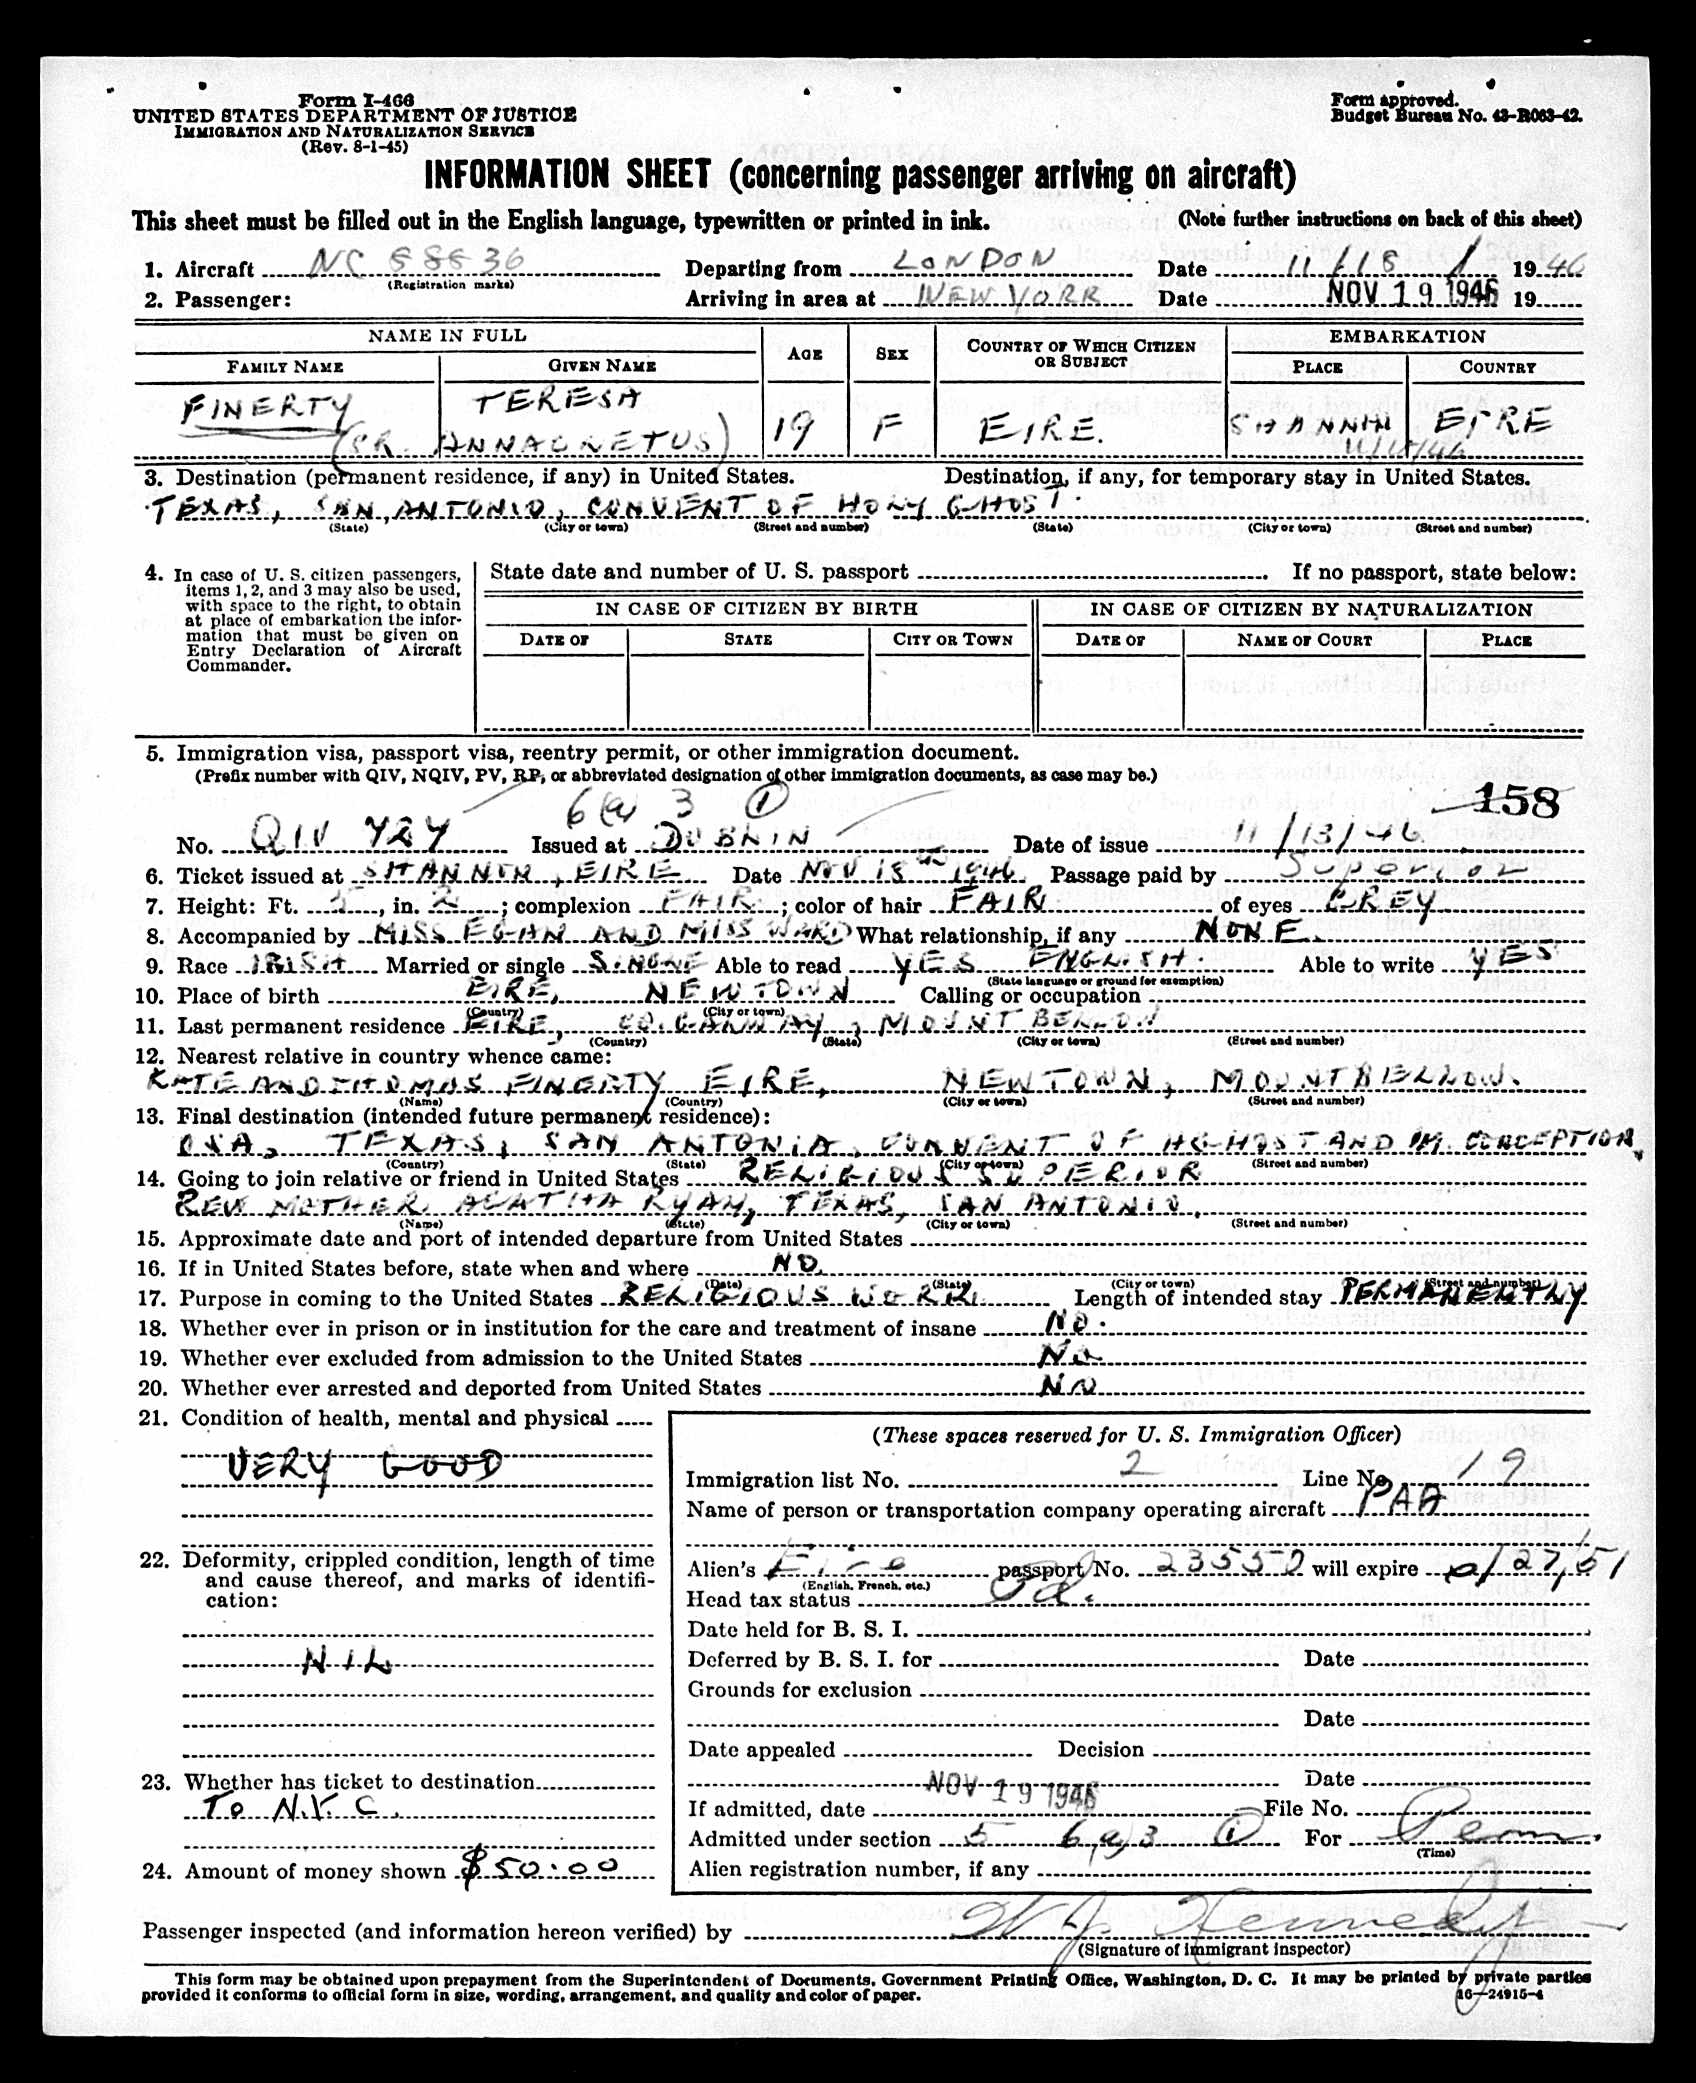 Form I-466
UNITED STATES DEPARTMENT OF JUSTICE
IMMIGRATION AND NATURALIZATION SERVICE
(Rev. 8-1-45)
Form approved.
Budget Bureau No. 43-R063-42.
INFORMATION SHEET (concerning passenger arriving on aircraft)
This sheet must be filled out in the English language, typewritten or printed in ink. (Note further instructions on back of this sheet)
1. Aircraft NC 88836 Departing from LONDON Date 11/18/ 1946
(Registration marks)
2. Passenger: Arriving in area at NEW YORK Date NOV 19 1946 19
NAME IN FULL
FAMILY NAME GIVEN NAME AGE SEX COUNTRY OF WHICH CITIZEN OR SUBJECT EMBARKATION
PLACE COUNTRY
FINERTY TERESA
(SR. ANNACRETUS) 19 F EIRE. SHANNIN EIRE
3. Destination (permanent residence, if any) in United States. Destination, if any, for temporary stay in United States.
TEXAS, SAN ANTONIO, CONVENT OF HOLY GHOST.
(State) (City or town) (Street and number) (State) (City or town) (Street and number)
4. In case of U. S. citizen passengers, items 1, 2, and 3 may also be used, with space to the right, to obtain at place of embarkation the information that must be given on Entry Declaration of Aircraft Commander.
State date and number of U. S. passport . If no passport, state below:
IN CASE OF CITIZEN BY BIRTH IN CASE OF CITIZEN BY NATURALIZATION
DATE OF STATE CITY OR TOWN DATE OF NAME OF COURT PLACE
5. Immigration visa, passport visa, reentry permit, or other immigration document.
(Prefix number with QIV, NQIV, PV, RP, or abbreviated designation of other immigration documents, as case may be.)
6(a) 3 (1) 158
No. QIV 424 Issued at DUBLIN Date of issue 11/13/46
6. Ticket issued at SHANNON, EIRE Date NOV 18th 1946. Passage paid by Superior
7. Height: Ft. 5, in. 2; complexion FAIR; color of hair FAIR of eyes GREY
8. Accompanied by MISS EGAN AND MISS WARD What relationship, if any NONE.
9. Race IRISH Married or single SINGLE Able to read YES ENGLISH. Able to write YES
(State language or ground for exemption)
10. Place of birth EIRE, NEWTOWN Calling or occupation
(Country) (City or town)
11. Last permanent residence EIRE, CO. GALWAY, MOUNT BELLOW
(Country) (State) (City or town) (Street and number)
12. Nearest relative in country whence came:
KATE AND THOMAS FINERTY EIRE, NEWTOWN, MOUNTBELLOW.
(Name) (Country) (City or town) (Street and number)
13. Final destination (intended future permanent residence):
USA, TEXAS, SAN ANTONIA, CONVENT OF H GHOST AND IM. CONCEPTION
(Country) (State) (City or town) (Street and number)
14. Going to join relative or friend in United States RELIGIOUS SUPERIOR
REV MOTHER AGATHA RYAN, TEXAS, SAN ANTONIO.
(Name) (State) (City or town) (Street and number)
15. Approximate date and port of intended departure from United States
16. If in United States before, state when and where NO.
(Date) (State) (City or town) (Street and number)
17. Purpose in coming to the United States RELIGIOUS WORK. Length of intended stay PERMANENTLY
18. Whether ever in prison or in institution for the care and treatment of insane NO.
19. Whether ever excluded from admission to the United States NO
20. Whether ever arrested and deported from United States NO
21. Condition of health, mental and physical
VERY GOOD
22. Deformity, crippled condition, length of time and cause thereof, and marks of identification:
NIL
23. Whether has ticket to destination
TO N.Y.C.
24. Amount of money shown $50.00
(These spaces reserved for U. S. Immigration Officer)
Immigration list No. 2 Line No. 19
Name of person or transportation company operating aircraft PAA
Alien's Eire passport No. 23550 will expire /27/51
(English, French, etc.)
Head tax status Pd.
Date held for B. S. I.
Deferred by B. S. I. for Date
Grounds for exclusion
Date
Date appealed Decision
Date
NOV 19 1946
If admitted, date File No.
Admitted under section 5 6(a)3 (1) For Perm.
(Time)
Alien registration number, if any
Passenger inspected (and information hereon verified) by W. J. Kennedy
(Signature of immigrant inspector)
This form may be obtained upon prepayment from the Superintendent of Documents, Government Printing Office, Washington, D. C. It may be printed by private parties
provided it conforms to official form in size, wording, arrangement, and quality and color of paper. 16—24915-4